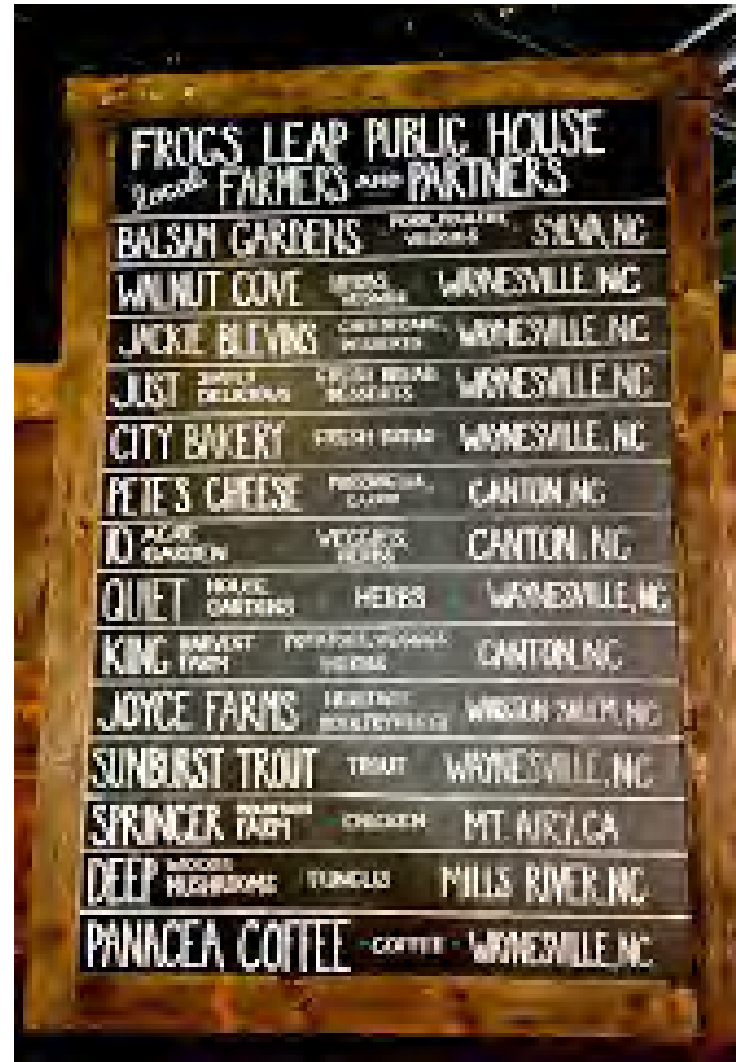 FROGS LEAP PUBLIC HOUSE
local FARMERS AND PARTNERS
BALSAM GARDENS VEGGIES SYLVA, NC
WALNUT COVE WAYNESVILLE, NC
JACKIE BLEVINS DESSERTS WAYNESVILLE, NC
JUST SIMPLY DELICIOUS FRESH BREAD DESSERTS WAYNESVILLE, NC
CITY BAKERY FRESH BREAD WAYNESVILLE, NC
PETE'S CHEESE CANTON, NC
10 ACRE GARDEN VEGGIES HERBS CANTON, NC
QUIET HOUSE GARDENS HERBS WAYNESVILLE, NC
KING HARVEST FARM POTATOES, VEGGIES HERBS CANTON, NC
JOYCE FARMS WINSTON SALEM, NC
SUNBURST TROUT TROUT WAYNESVILLE, NC
SPRINGER MOUNTAIN FARM CHICKEN MT. AIRY, GA
DEEP WOODS MUSHROOMS FUNGUS MILLS RIVER, NC
PANACEA COFFEE - COFFEE - WAYNESVILLE, NC